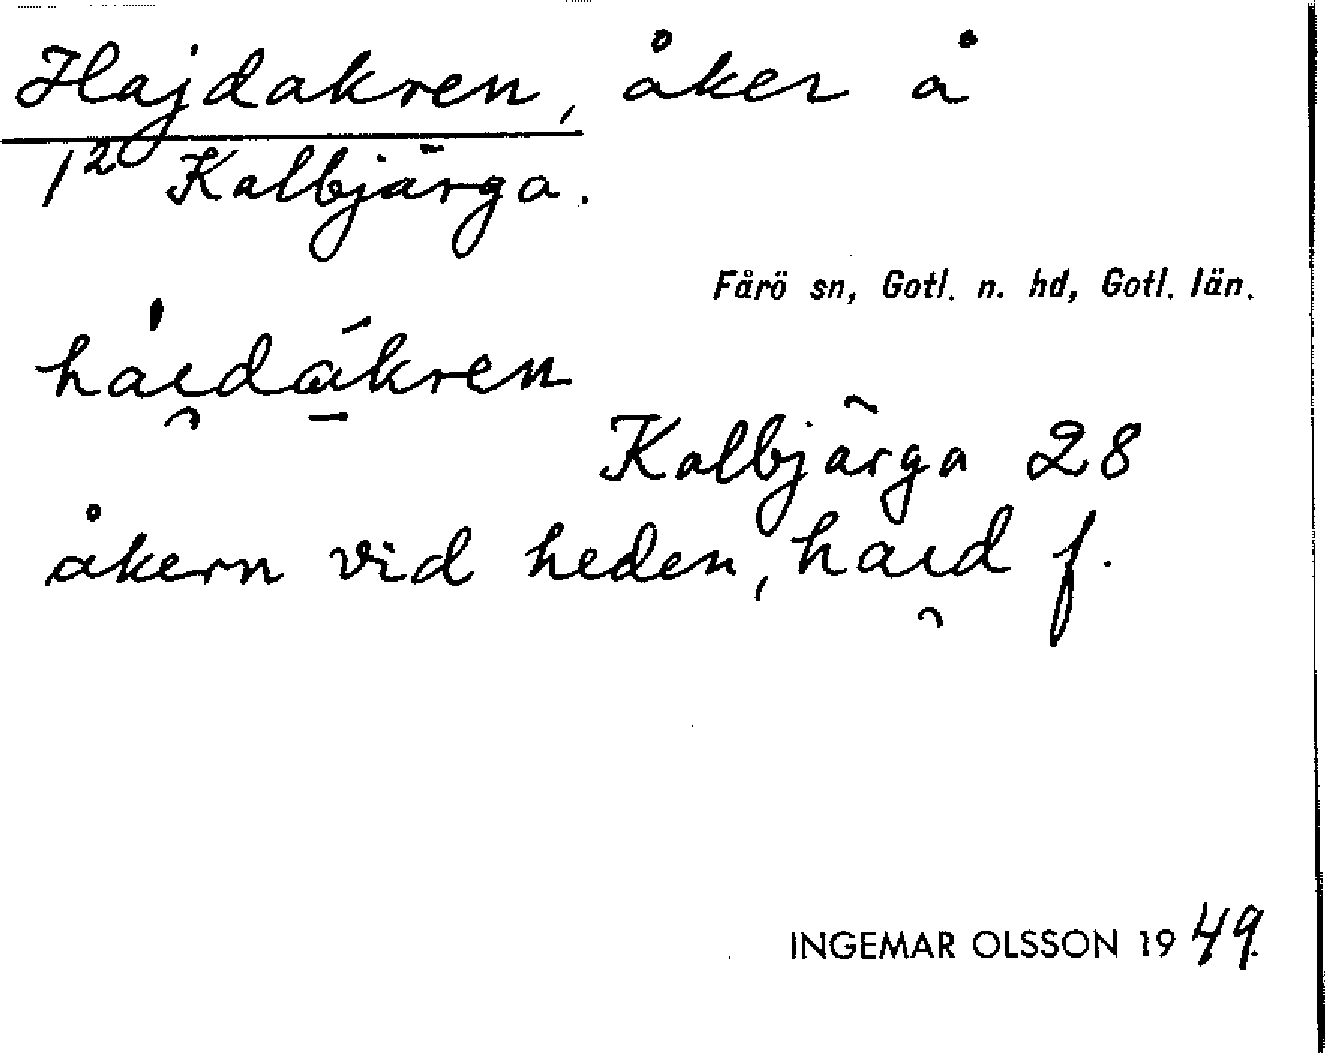 Hajdakren, åker å
1² Kalbjärga.
Fårö sn, Gotl. n. hd, Gotl. län.
ha̍ı̯dǻ̱kren
Kalbjärga 28
åkern vid heden, haı̯d f.
INGEMAR OLSSON 1949.